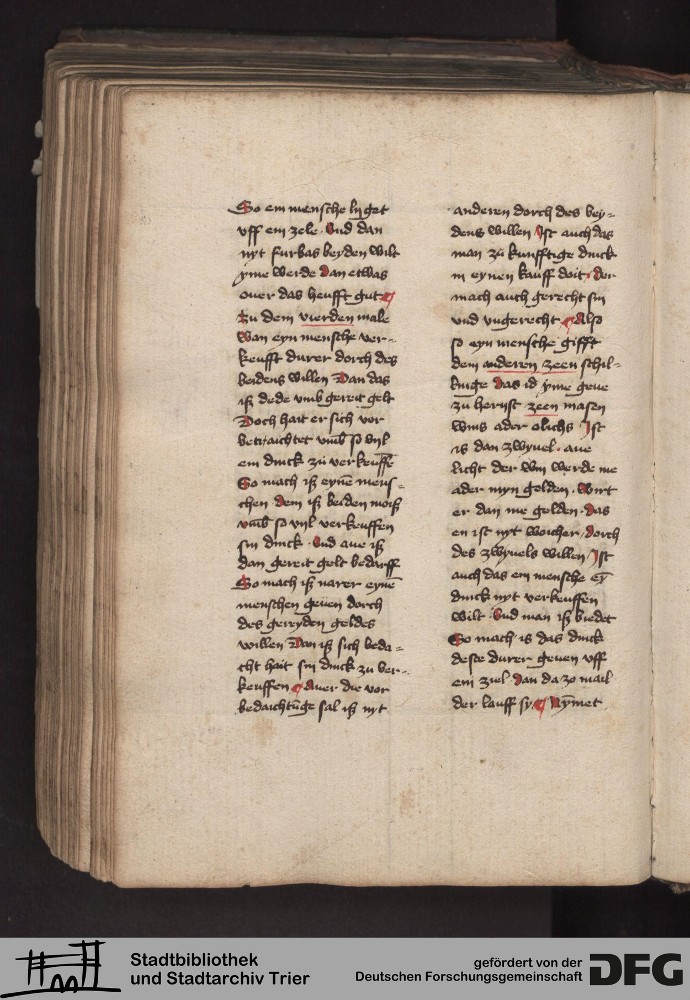 So ein mensche lyget
vff ein zele · Vnd dan
nyt furbas beyden wilt
yme werde Dan etwas
ouer das heufft gut
Zu dem vierden male
Wan eyn mensche ver-
keufft durer dorch des
beidens willen Dan das
iß dede vmb gereit gelt
Doch hait er sich vor
betraichtet vmb so vyl
ein dinck zu verkeuffē
So mach iß eynē mens-
chen dem iß beiden moiß
vmb so vyl verkeuffen
sin dinck · Vnd aue iß
dan gereit gelt bedarff
So mach iß narer eynē
menschen geuen dorch
des gereyden geldes
willen Dan iß sich beda-
cht hait sin dinck zu ver-
keuffen Auer die vor
bedaichtūge sal iß nyt
anderen dorch des bey-
dens willen Ist auch das
man zu kunfftige dinck
in eynen kauff doit · der
mach auch gerecht sin
vnd vngerecht Also
so eyn mensche gifft
dem anderen zeen schil-
linge das id yme geue
zu hernst zeen masen
wins ader olichs Ist
is dan zwyuel · aue
licht der win werde me
ader myn gelden · Wirt
er dan me gelden · das
en ist nyt woicher / dorch
des zwyuels willen / Ist
auch das ein mensche eȳ
dinck nyt verkeuffen
wilt · Vnd man iß biedet
So mach is das dinck
deste durer geuen vff
ein ziel dan da zo mail
der lauff sy Nȳmet
Stadtbibliothek
und Stadtarchiv Trier
gefördert von der
Deutschen Forschungsgemeinschaft
DFG